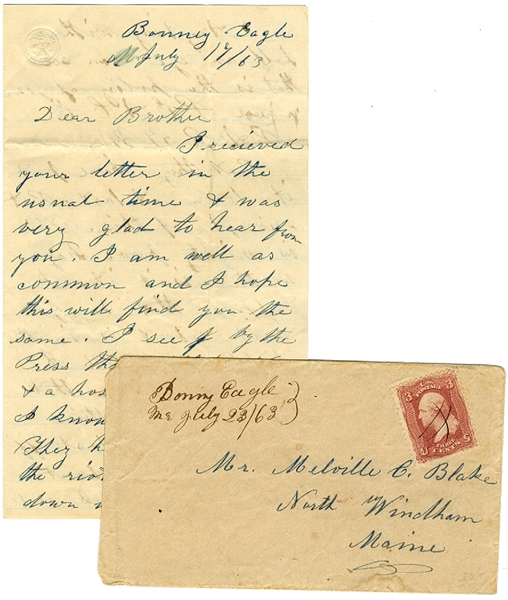 Bonney Eagle
July 19/63
Dear Brother
I recieved
your letter in the
usual time & was
very glad to hear from
you. I am well as
common and I hope
this will find you the
same. I see by the
Press
& a
I
They
the
down
Bonny Eagle
Me July 23/63
U.S. POSTAGE
3 3
U THREE CENTS S
Mr. Melville C. Blake
North Windham
Maine